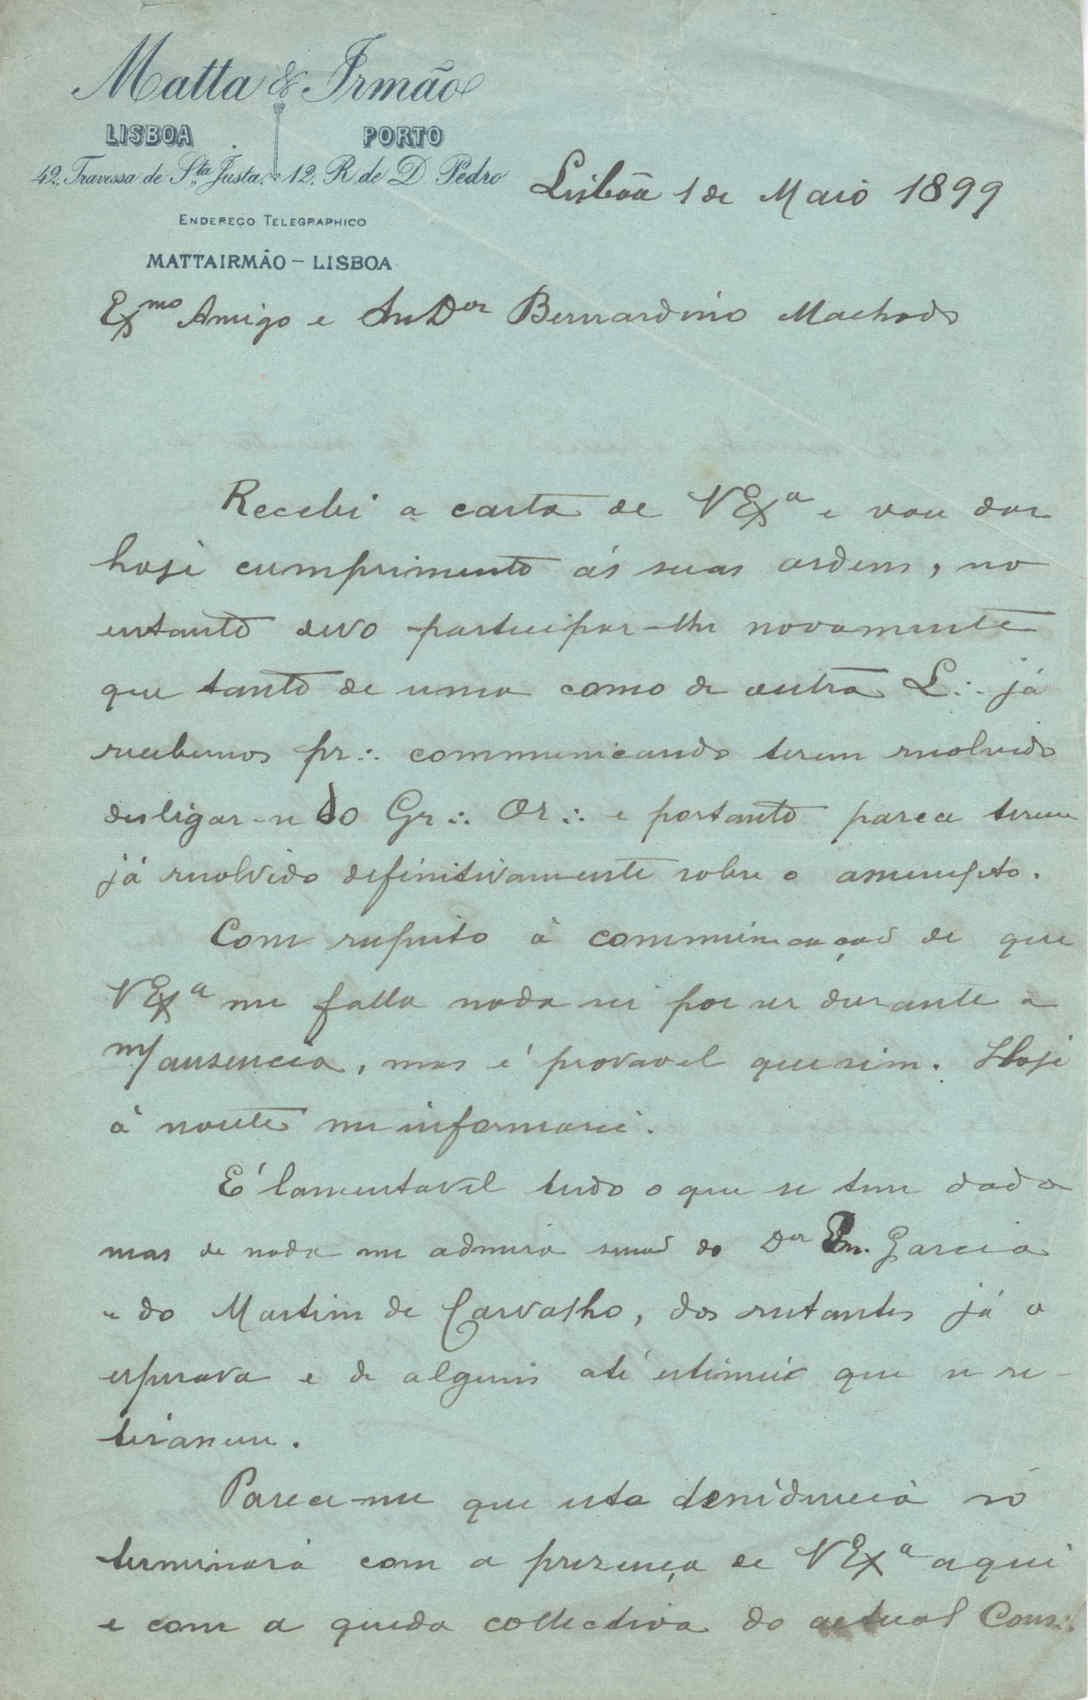 Matta & Irmão
LISBOA PORTO
42, Travessa de Sta Justa, 12, R. de D. Pedro
ENDEREÇO TELEGRAPHICO
MATTAIRMÃO – LISBOA
Lisbôa 1 de Maio 1899
Exmo Amigo e Snr Dor Bernardino Machado
Recebi a carta de VExa e vou dar
hoje cumprimento ás suas ordens, no
entanto devo participar-lhe novamente
que tanto de uma como de outra L∴ já
recebemos pr∴ communicando terem resolvido
desligar-se do Gr∴ Or∴ e portanto parece terem
já resolvido definitivamente sobre o assumpto.
Com respeito á communicação de que
VExa me falla nada sei por ver durante a
m/ ausencia, mas é provavel que sim. Hoje
á noute me informarei.
É lamentavel tudo o que se tem dado
mas de nada me admira senão do Dor Em. Garcia
e do Martim de Carvalho, dos restantes já o
esperava e de alguns até estimei que se re-
tirassem.
Parece-me que esta dissidencia só
terminará com a presença de VExa aqui
e com a queda collectiva do actual Cons∴